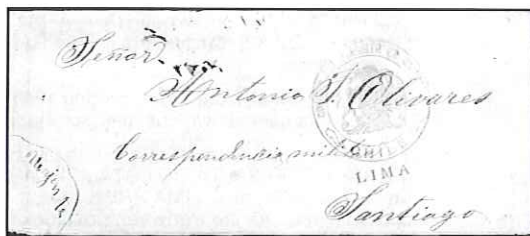 Señor
Antonio S. Olivares
Correspondencia militar
CHILE
LIMA
Santiago